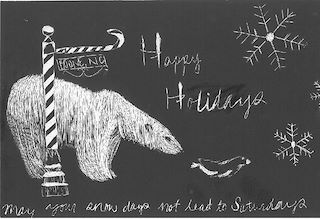 Happy
Holidays
May your snow days not lead to Saturdays